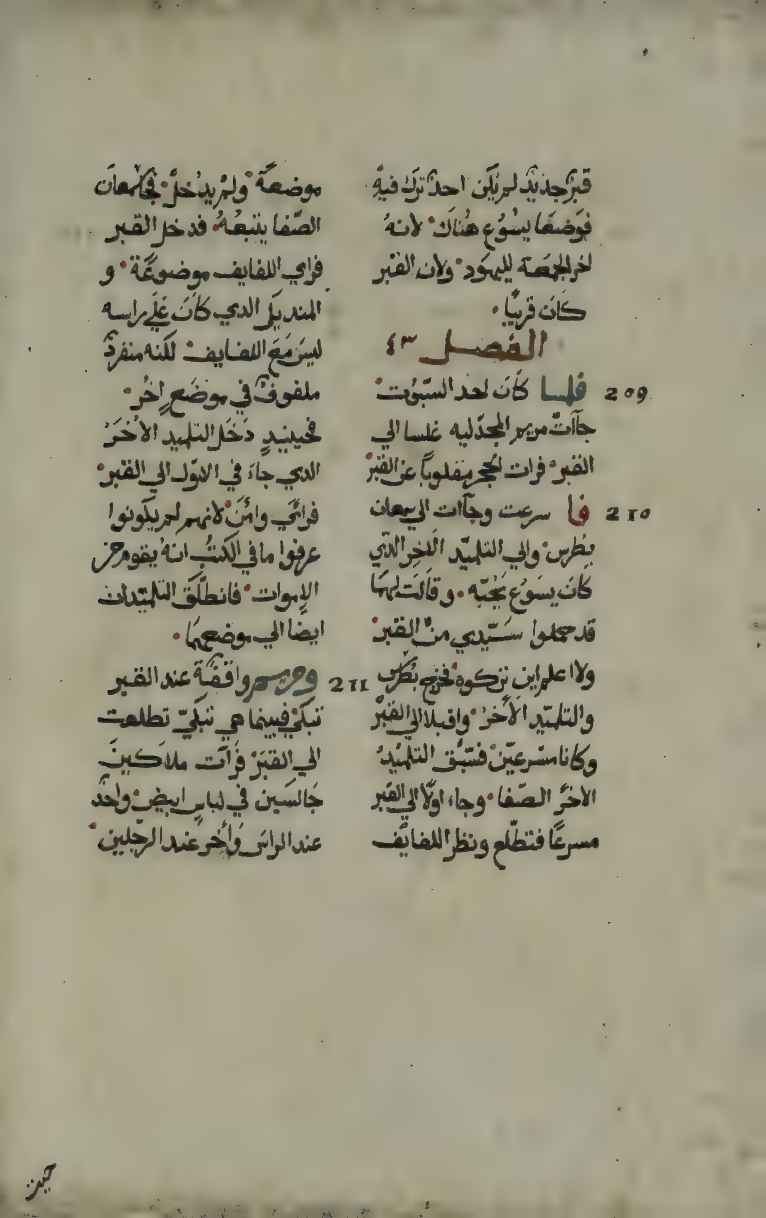 قبرٌ جديدٌ لم يكن احدٌ ترك فيهِ
فوضعا يسُوع هُناك لانهُ
اخر الجمعة لليهود ولان القبر
كان قريبًا
الفصل ٤٣
209 فلما كان احد السّبوت
جآأت مريم المجدّليه غلسا الي
القبر فرات الحجر مقلوبًا عن القبر
210 فا سرعت وجآات الي سمعان
بطرس والي التلميّد الاخر الدّي
كان يسوع يحُبّه وقالت لهما
قد حملوا سيّدي منْ القبر
ولا اعلم اين تركوه فخرج بطرس
والتلميّد الاخر واقبلا الي القبر
وكانا مسْرعيّن فسّبق التلميْد
الاخرُ الصّفا وجاء اولًا الي القبر
مسرعًا فتطّلع ونظر اللفايف
موضعة ولم يدُخلْ فجا سمعان
الصّفا يتبعهُ فدخل القبر
فراي اللفايف موضوعَة و
المنديل الدي كان علي راسه
ليس مَع اللفايف لكنه منفردٌ
ملفوفٌ في موضع اخُر
فحينيدٍ دَخل التلميد الاخرَ
الدي جاء في الاوّل الي القبر
فرائي وامَن لانهم لم يكونوا
عرفوا ما في الكتبُ انهُ يقوم من
الاموات فانطلَق التلميّدان
ايضا الي موضعهما
211 ومريم واقفة عند القبر
تبكي فبينما هي تبكي تطلعت
الي القبَر فرَات ملاكينَ
جَالسَين في لباس ابيض واحدٌ
عند الراس وأخر عند الرجلين
حين